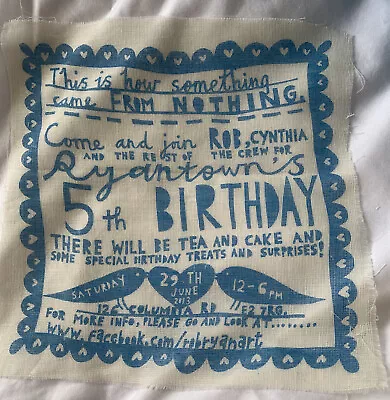 This is how something
came FROM NOTHING.
Come and join ROB, CYNTHIA
AND THE REST OF THE CREW FOR
Ryantown's
5th BIRTHDAY
THERE WILL BE TEA AND CAKE AND
SOME SPECIAL BIRTHDAY TREATS AND SURPRISES!
SATURDAY 29TH JUNE 2013 12-6PM
126 COLUMBIA RD E2 7RG.
FOR MORE INFO, PLEASE GO AND LOOK AT........
www.facebook.com/robryanart